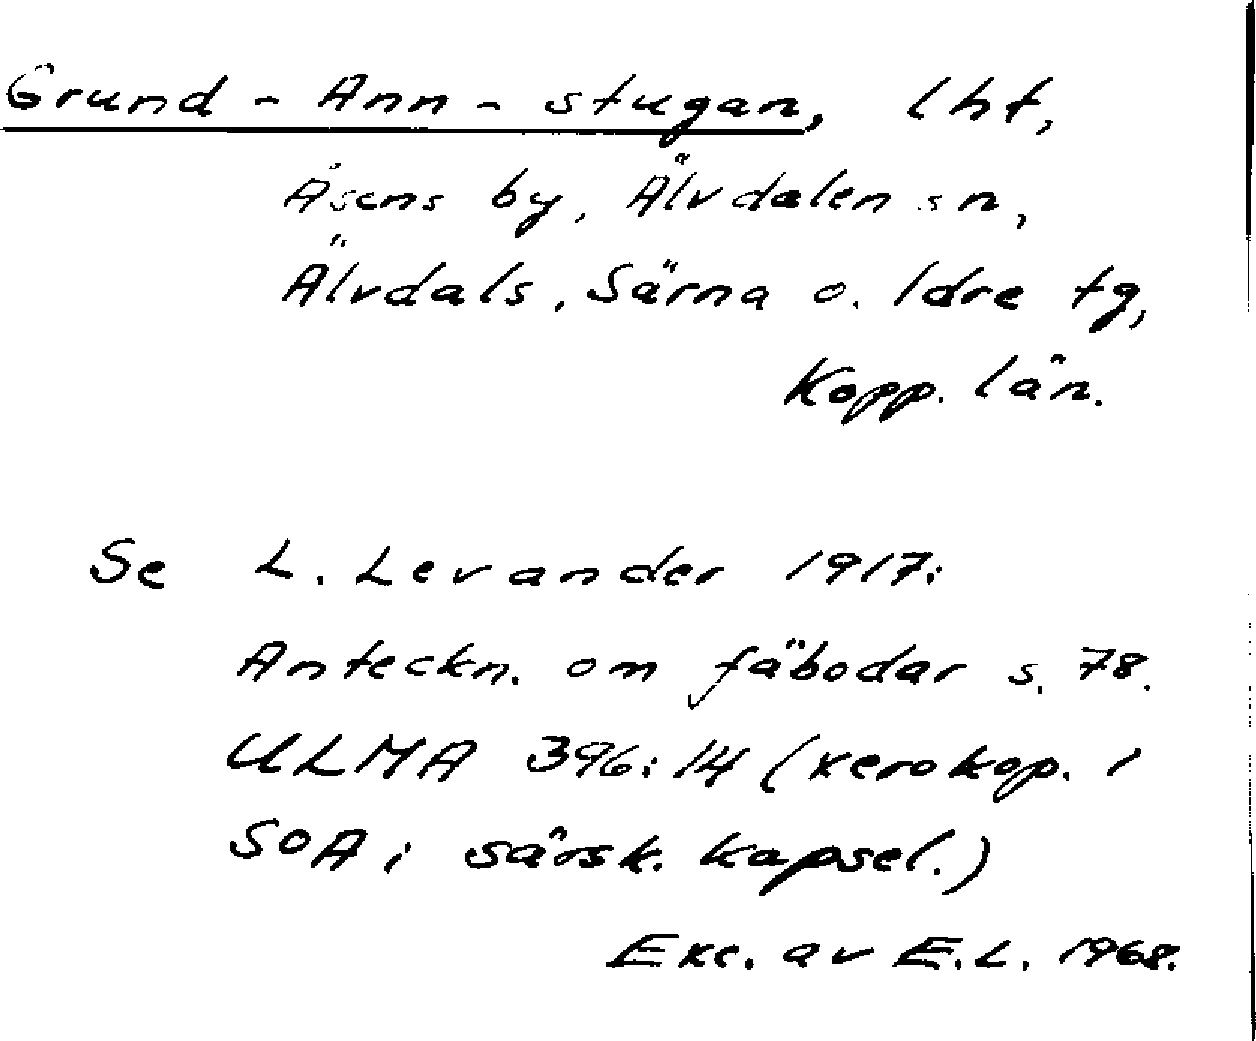 Grund-Ann-stugan, lht,
Åsens by, Älvdalen sn,
Älvdals, Särna o. Idre tg,
Kopp. län.
Se L. Levander 1917:
Anteckn. om fäbodar s. 78.
ULMA 396:14 (xerokop. i
SOA i särsk. kapsel.)
Exc. av E.L. 1968.